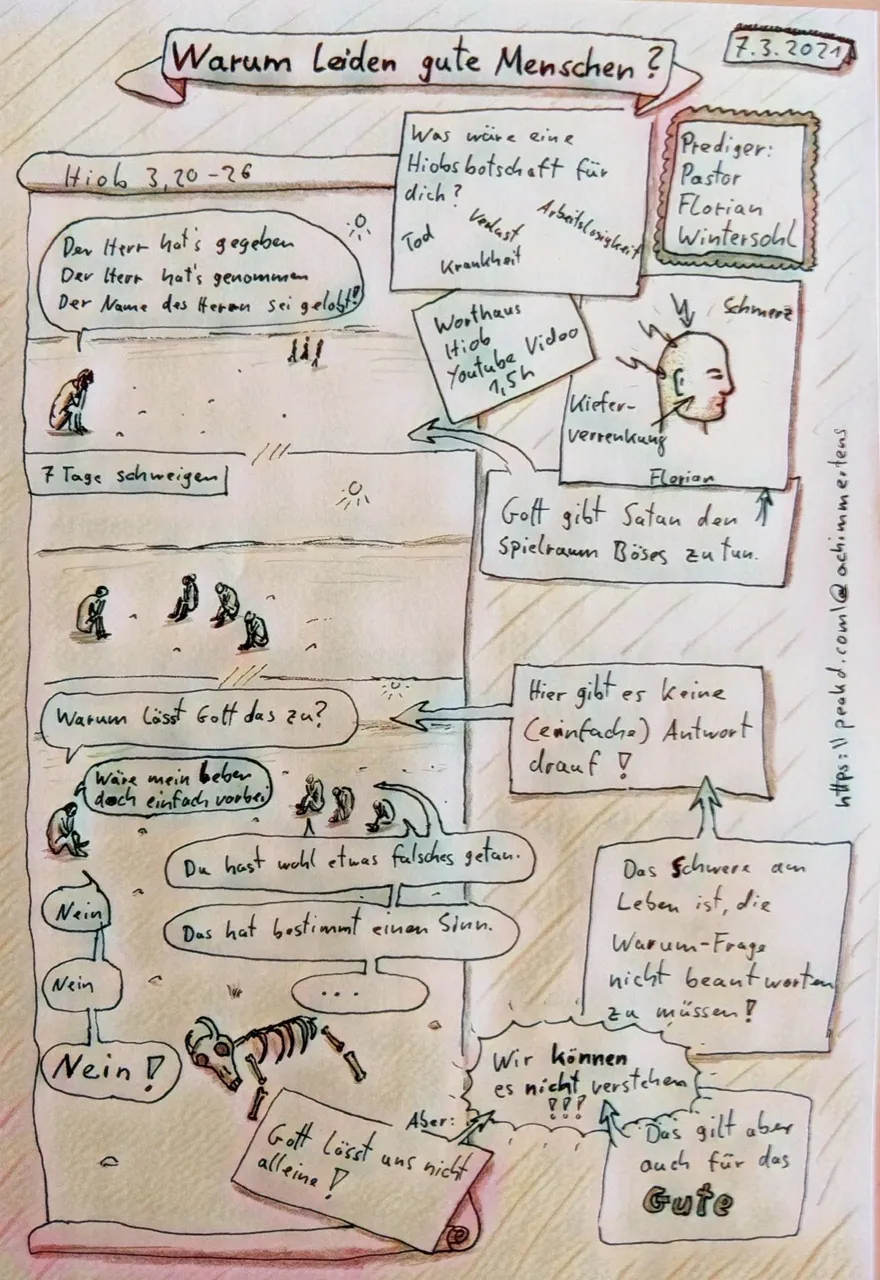 Warum leiden gute Menschen?
7.3.2021
Hiob 3,20-26
Was wäre eine
Hiobsbotschaft für
dich?
Tod
Verlust
Arbeitslosigkeit
Krankheit
Prediger:
Pastor
Florian
Wintersohl
Der Herr hat's gegeben
Der Herr hat's genommen
Der Name des Herrn sei gelobt!
Worthaus
Hiob
Youtube Video
1,5h
Schmerz
Kiefer-
verrenkung
Florian
7 Tage schweigen
Gott gibt Satan den
Spielraum Böses zu tun.
Warum lässt Gott das zu?
Hier gibt es keine
(einfache) Antwort
drauf!
Wäre mein Leben
doch einfach vorbei
Du hast wohl etwas falsches getan.
Nein
Das hat bestimmt einen Sinn.
Nein
...
Nein!
Das Schwere am
Leben ist, die
Warum-Frage
nicht beantworten
zu müssen!
Wir können
es nicht verstehen
!!!
Aber:
Gott lässt uns nicht
alleine!
Das gilt aber
auch für das
Gute
https://peakd.com/@achimmertens